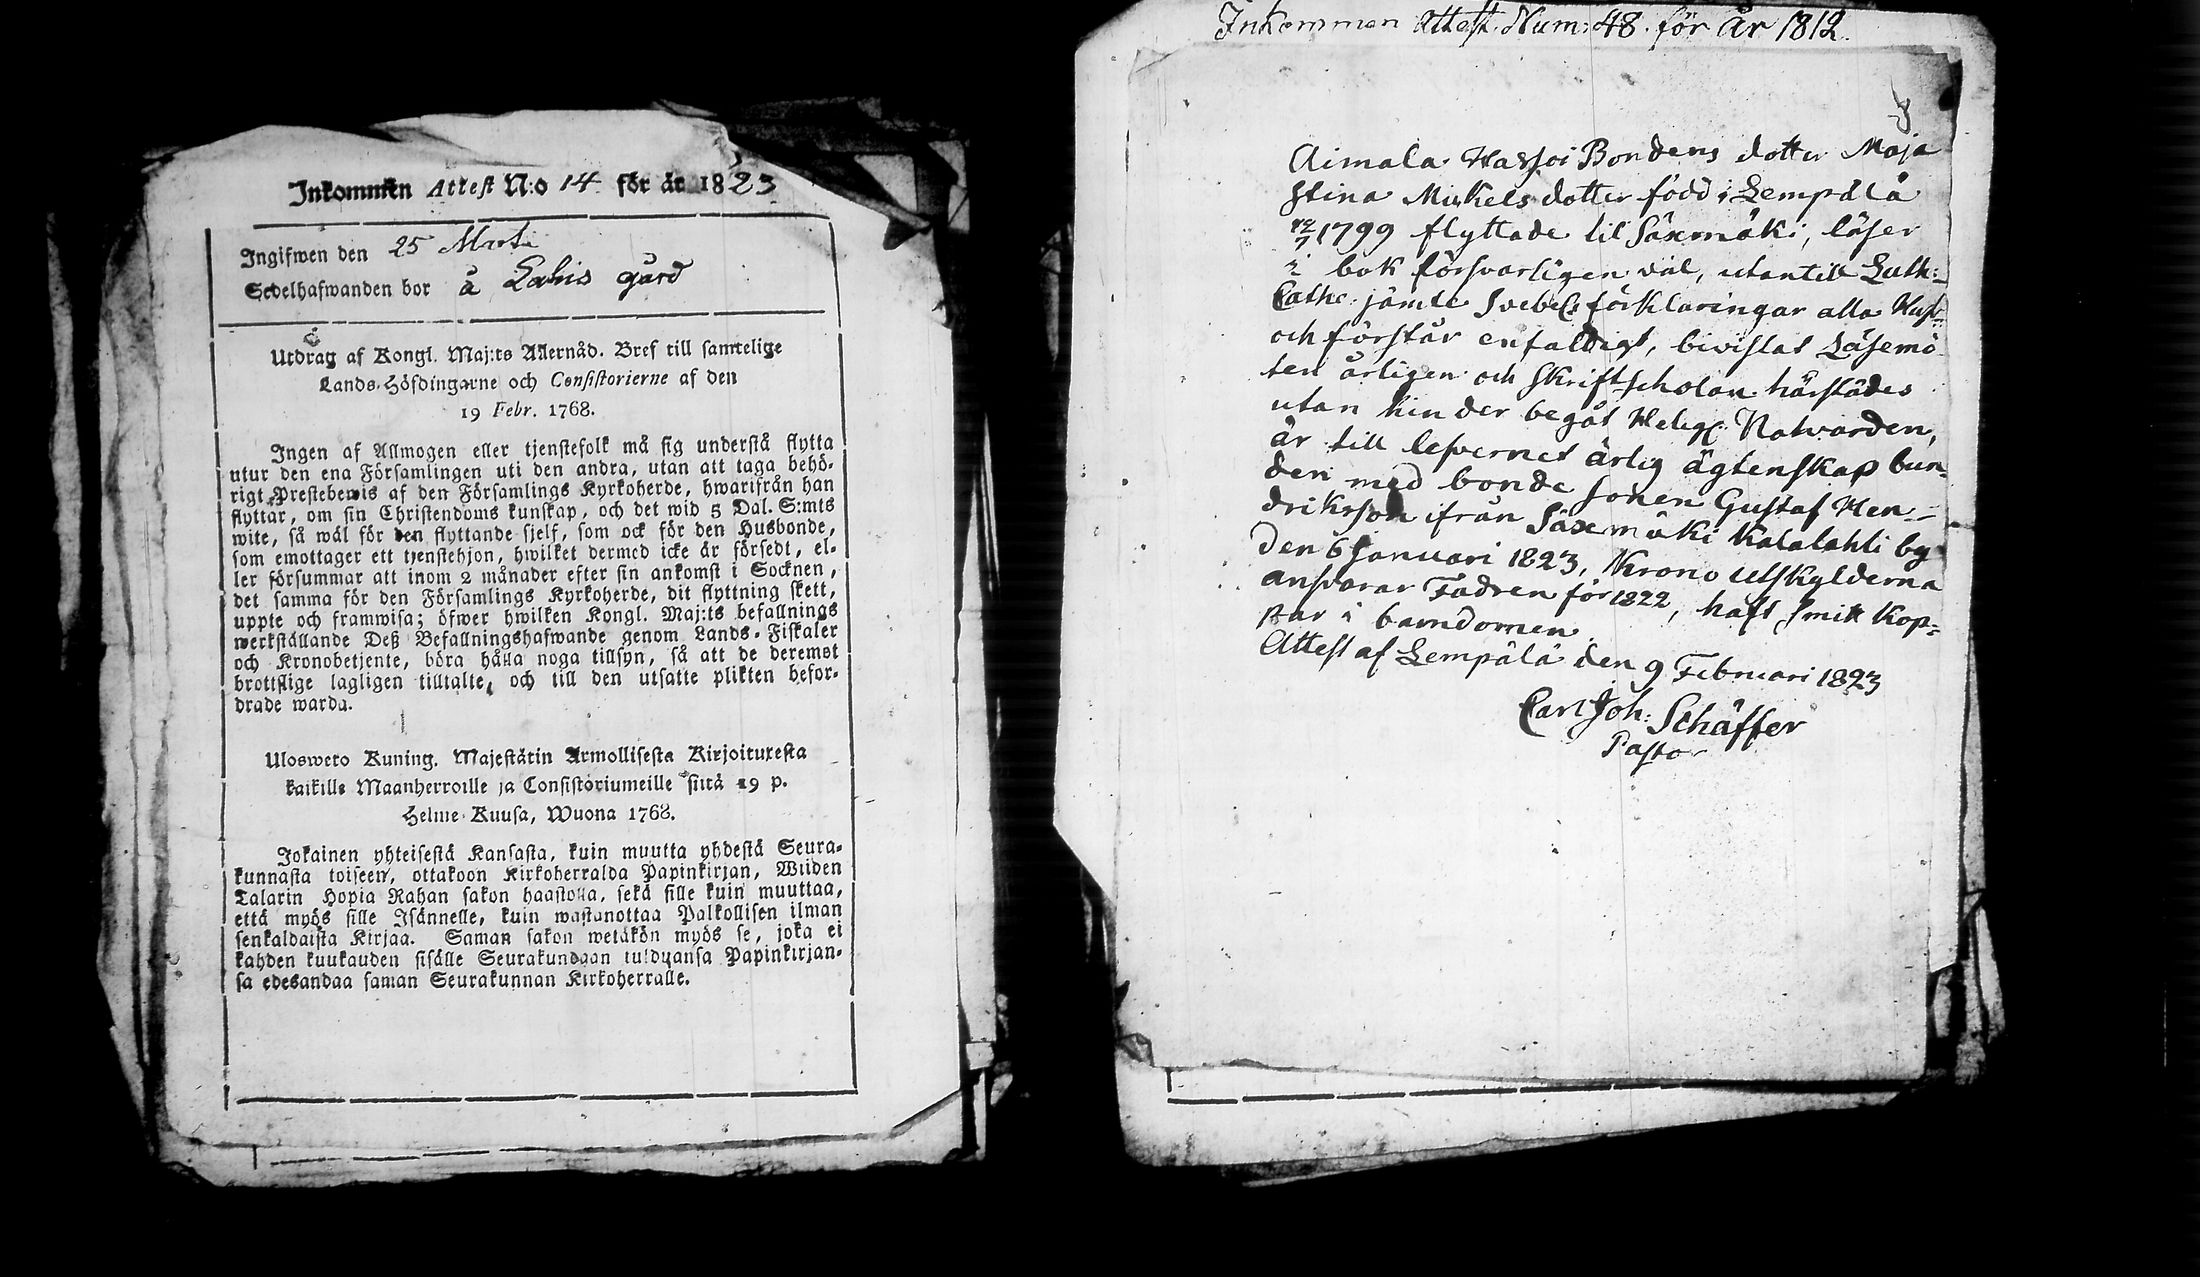 Inkommen Attest N:o 14 för år 1823
Ingifwen den 25 Marti
Sedelhafwanden bor å Lahis gård
Utdrag af Kongl. Maj:ts Allernåd. Bref till samtelige
Lands-Höfdingarne och Consistorierne af den
19 Febr. 1768.
Ingen af Allmogen eller tjenstefolk må sig understå flytta
utur den ena Församlingen uti den andra, utan att taga behö-
rigt Prestebewis af den Församlings Kyrkoherde, hwarifrån han
flyttar, om sin Christendoms kunskap, och det wid 5 Dal. S:mts
wite, så wäl för den flyttande sjelf, som ock för den Husbonde,
som emottager ett tjenstehjon, hwilket dermed icke är försedt, el-
ler försummar att inom 2 månader efter sin ankomst i Socknen,
det samma för den Församlings Kyrkoherde, dit flyttning skett,
uppte och framwisa; öfwer hwilken Kongl. Maj:ts befallnings
werkställande Deß Befallningshafwande genom Lands-Fiskaler
och Kronobetjente, böra hålla noga tillsyn, så att de deremot
brottslige lagligen tilltalte, och till den utsatte plikten befor-
drade warda.
Ulosweto Kuning. Majestätin Armollisesta Kirjoituxesta
kaikille Maanherroille ja Consistoriumeille siitä 19 p.
Helme-Kuusa, Wuona 1768.
Jokainen yhteisestä Kansasta, kuin muutta yhdestä Seura-
kunnasta toiseen, ottakoon Kirkoherralda Papinkirjan, Wiiden
Talarin Hopia Rahan sakon haastolla, sekä sille kuin muuttaa,
että myös sille Isännelle, kuin wastanottaa Palkollisen ilman
senkaldaista Kirjaa. Saman sakon wetäkön myös se, joka ei
kahden kuukauden sisälle Seurakundaan tulduansa Papinkirjan-
sa edesandaa saman Seurakunnan Kirkoherralle.
Inkommen Attest Num: 48 för år 1812
Aimala Hassoi Bondens dotter Maja
Stina Mickels dotter född i Lempälä
12/7 1799 flyttade til Säxmäki, läser
i bok försvarligen väl, utantill Luth:
Cathc. jämte Svebels förklaringar alla Hust:
och förstår enfaldigt, bivistat Läsemö
ten årligen och Skriftscholan härstädes
utan hinder begåt Helige Natvarden,
är till lefvernet ärlig ägtenskap bun-
den med bonde sonen Gustaf Hen-
driksson ifrån Säxmäki Kalalahti by
den 6 Januari 1823, Krono utskylderna
ansvarar Fadren för 1822, haft Smitt Kop-
par i barndomen.
Attest af Lempälä den 9 Februari 1823
Carl Joh: Schäffer
Pastor